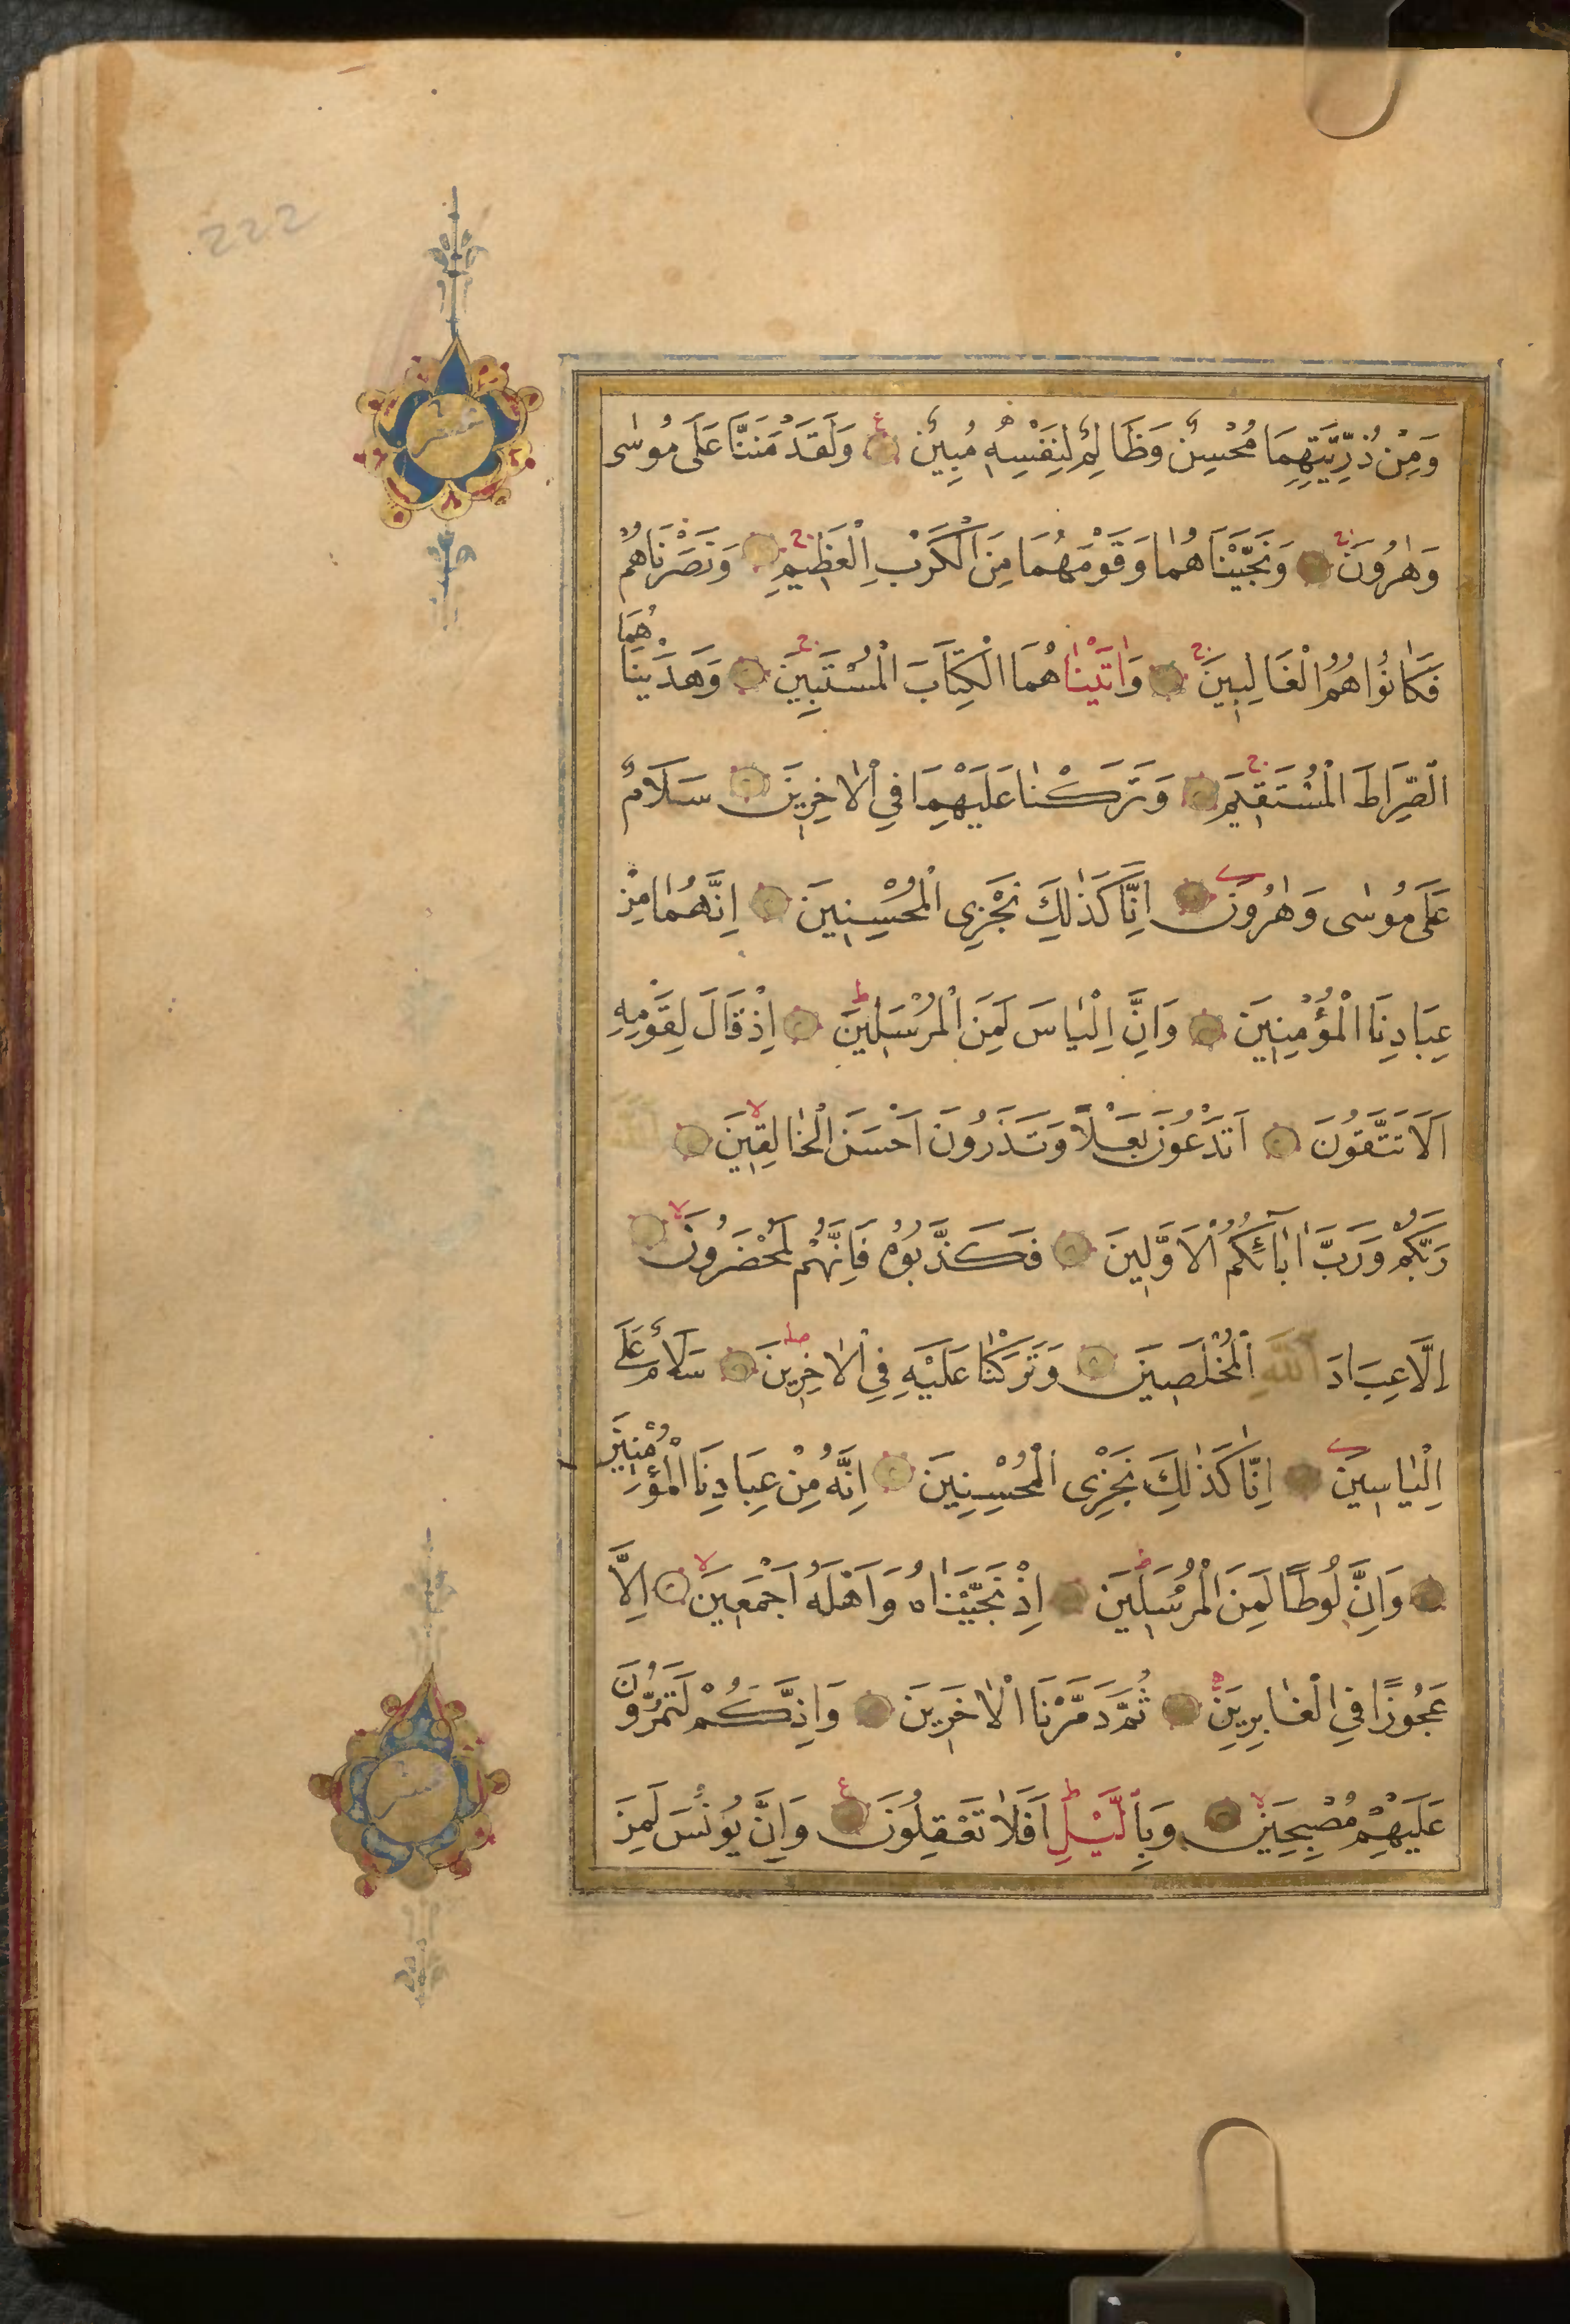 222
وَمِنْ ذُرِّيَّتِهِمَا مُحْسِنٌ وَظَالِمٌ لِنَفْسِهٖ مُبِينٌ ۝ وَلَقَدْ مَنَنَّا عَلَى مُوسٰى
وَهٰرُونَ ۝ وَنَجَّيْنَاهُمَا وَقَوْمَهُمَا مِنَ الْكَرْبِ الْعَظِيمِ ۝ وَنَصَرْنَاهُمْ
فَكَانُوا هُمُ الْغَالِبِينَ ۝ وَاٰتَيْنَاهُمَا الْكِتَابَ الْمُسْتَبِينَ ۝ وَهَدَيْنَاهُمَا
الصِّرَاطَ الْمُسْتَقِيمَ ۝ وَتَرَكْنَا عَلَيْهِمَا فِي الْاٰخِرِينَ ۝ سَلَامٌ
عَلَى مُوسٰى وَهٰرُونَ ۝ اِنَّا كَذٰلِكَ نَجْزِى الْمُحْسِنِينَ ۝ اِنَّهُمَا مِنْ
عِبَادِنَا الْمُؤْمِنِينَ ۝ وَاِنَّ اِلْيَاسَ لَمِنَ الْمُرْسَلِينَ ۝ اِذْ قَالَ لِقَوْمِهِ
اَلَا تَتَّقُونَ ۝ اَتَدْعُونَ بَعْلًا وَتَذَرُونَ اَحْسَنَ الْخَالِقِينَ ۝ اللّٰهَ
رَبَّكُمْ وَرَبَّ اٰبَائِكُمُ الْاَوَّلِينَ ۝ فَكَذَّبُوهُ فَاِنَّهُمْ لَمُحْضَرُونَ ۝
اِلَّا عِبَادَ اللّٰهِ الْمُخْلَصِينَ ۝ وَتَرَكْنَا عَلَيْهِ فِي الْاٰخِرِينَ ۝ سَلَامٌ عَلٰى
اِلْيَاسِينَ ۝ اِنَّا كَذٰلِكَ نَجْزِى الْمُحْسِنِينَ ۝ اِنَّهُ مِنْ عِبَادِنَا الْمُؤْمِنِينَ
۝ وَاِنَّ لُوطًا لَمِنَ الْمُرْسَلِينَ ۝ اِذْ نَجَّيْنَاهُ وَاَهْلَهُ اَجْمَعِينَ ۝ اِلَّا
عَجُوزًا فِي الْغَابِرِينَ ۝ ثُمَّ دَمَّرْنَا الْاٰخَرِينَ ۝ وَاِنَّكُمْ لَتَمُرُّونَ
عَلَيْهِمْ مُصْبِحِينَ ۝ وَبِاللَّيْلِ اَفَلَا تَعْقِلُونَ ۝ وَاِنَّ يُونُسَ لَمِنَ